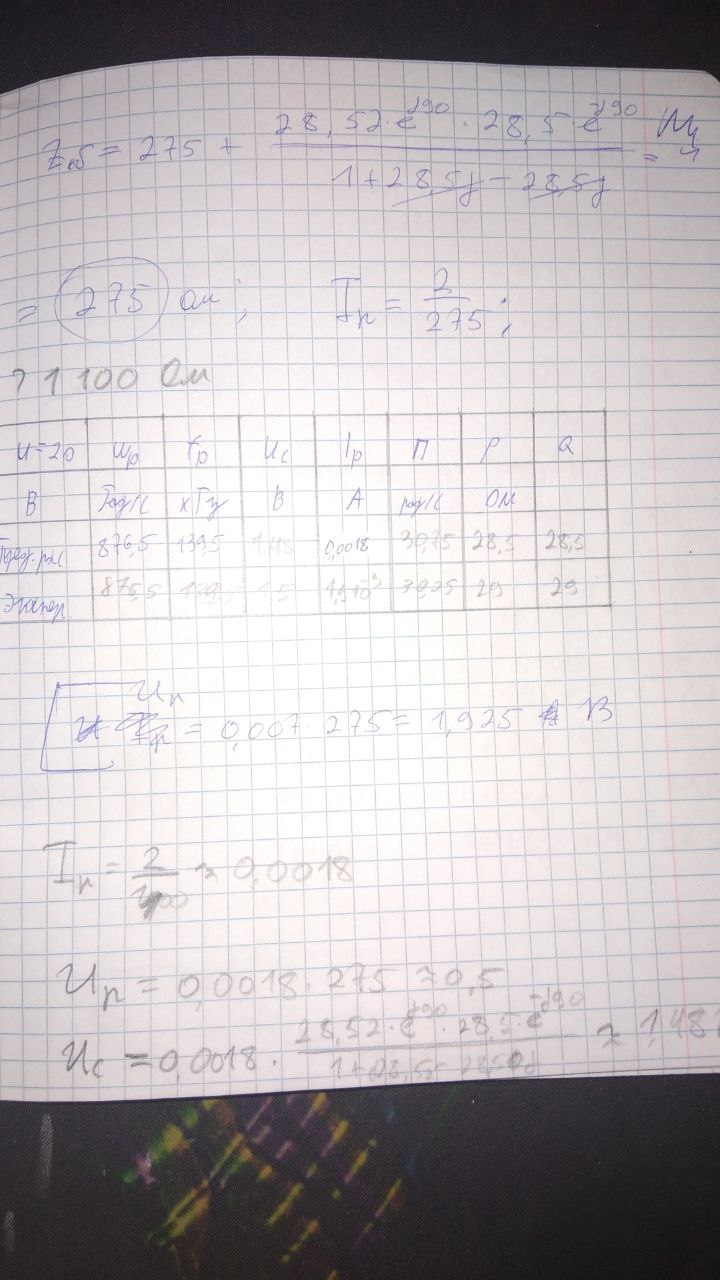 Zоб = 275 + 28,52·e^j90 · 28,5·e^-j90 / 1+28,5j - 28,5j =
= 275 Ом; Iр = 2/275;
1100 Ом
U=20 Wр fр Uс Iр П P Q
В Рад/с кГц В А рад/с Ом
876,5 139,5 1,48 0,0018 30,75 28,5 28,5
Экспер. 875,5 1,5 29 29
Uр = 0,007·275 = 1,925 В
Iр = 2 / ≈ 0,0018
Uр = 0,0018·275 ≈ 0,5
Uс = 0,0018 · 28,52·e^j90 · 28,5·e^-j90 / 1+28,5j ≈ 1,48